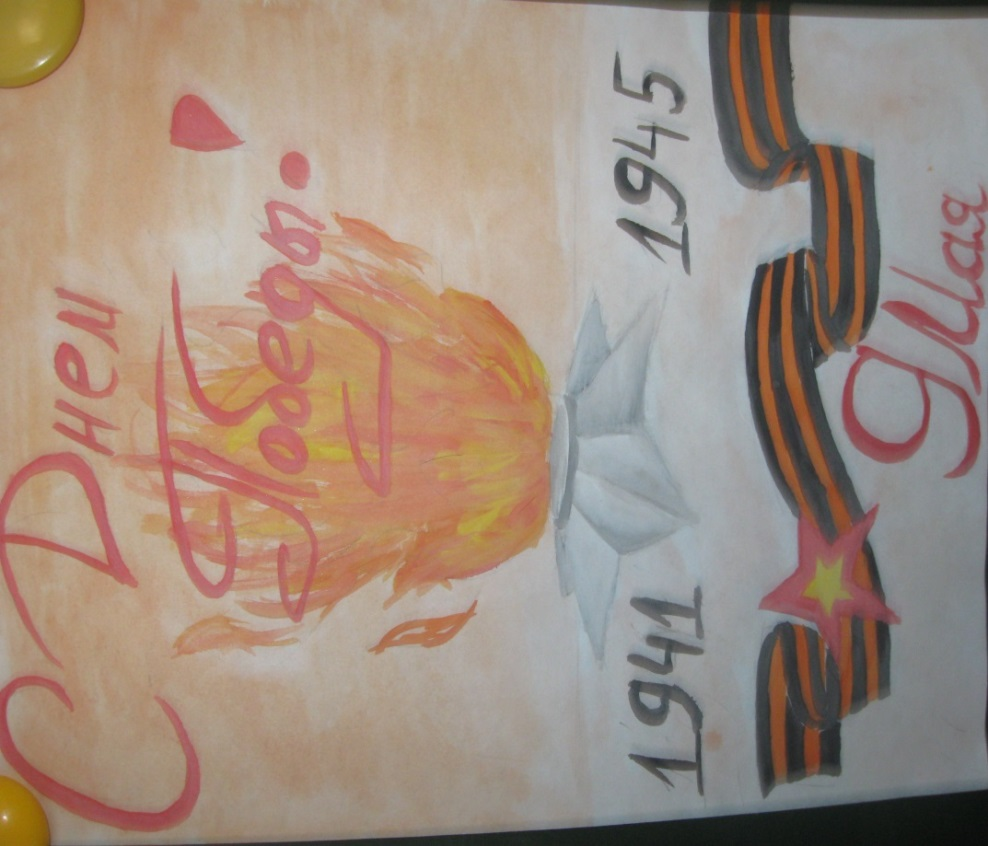 С Днем
Победы!
1941 1945
9 Мая